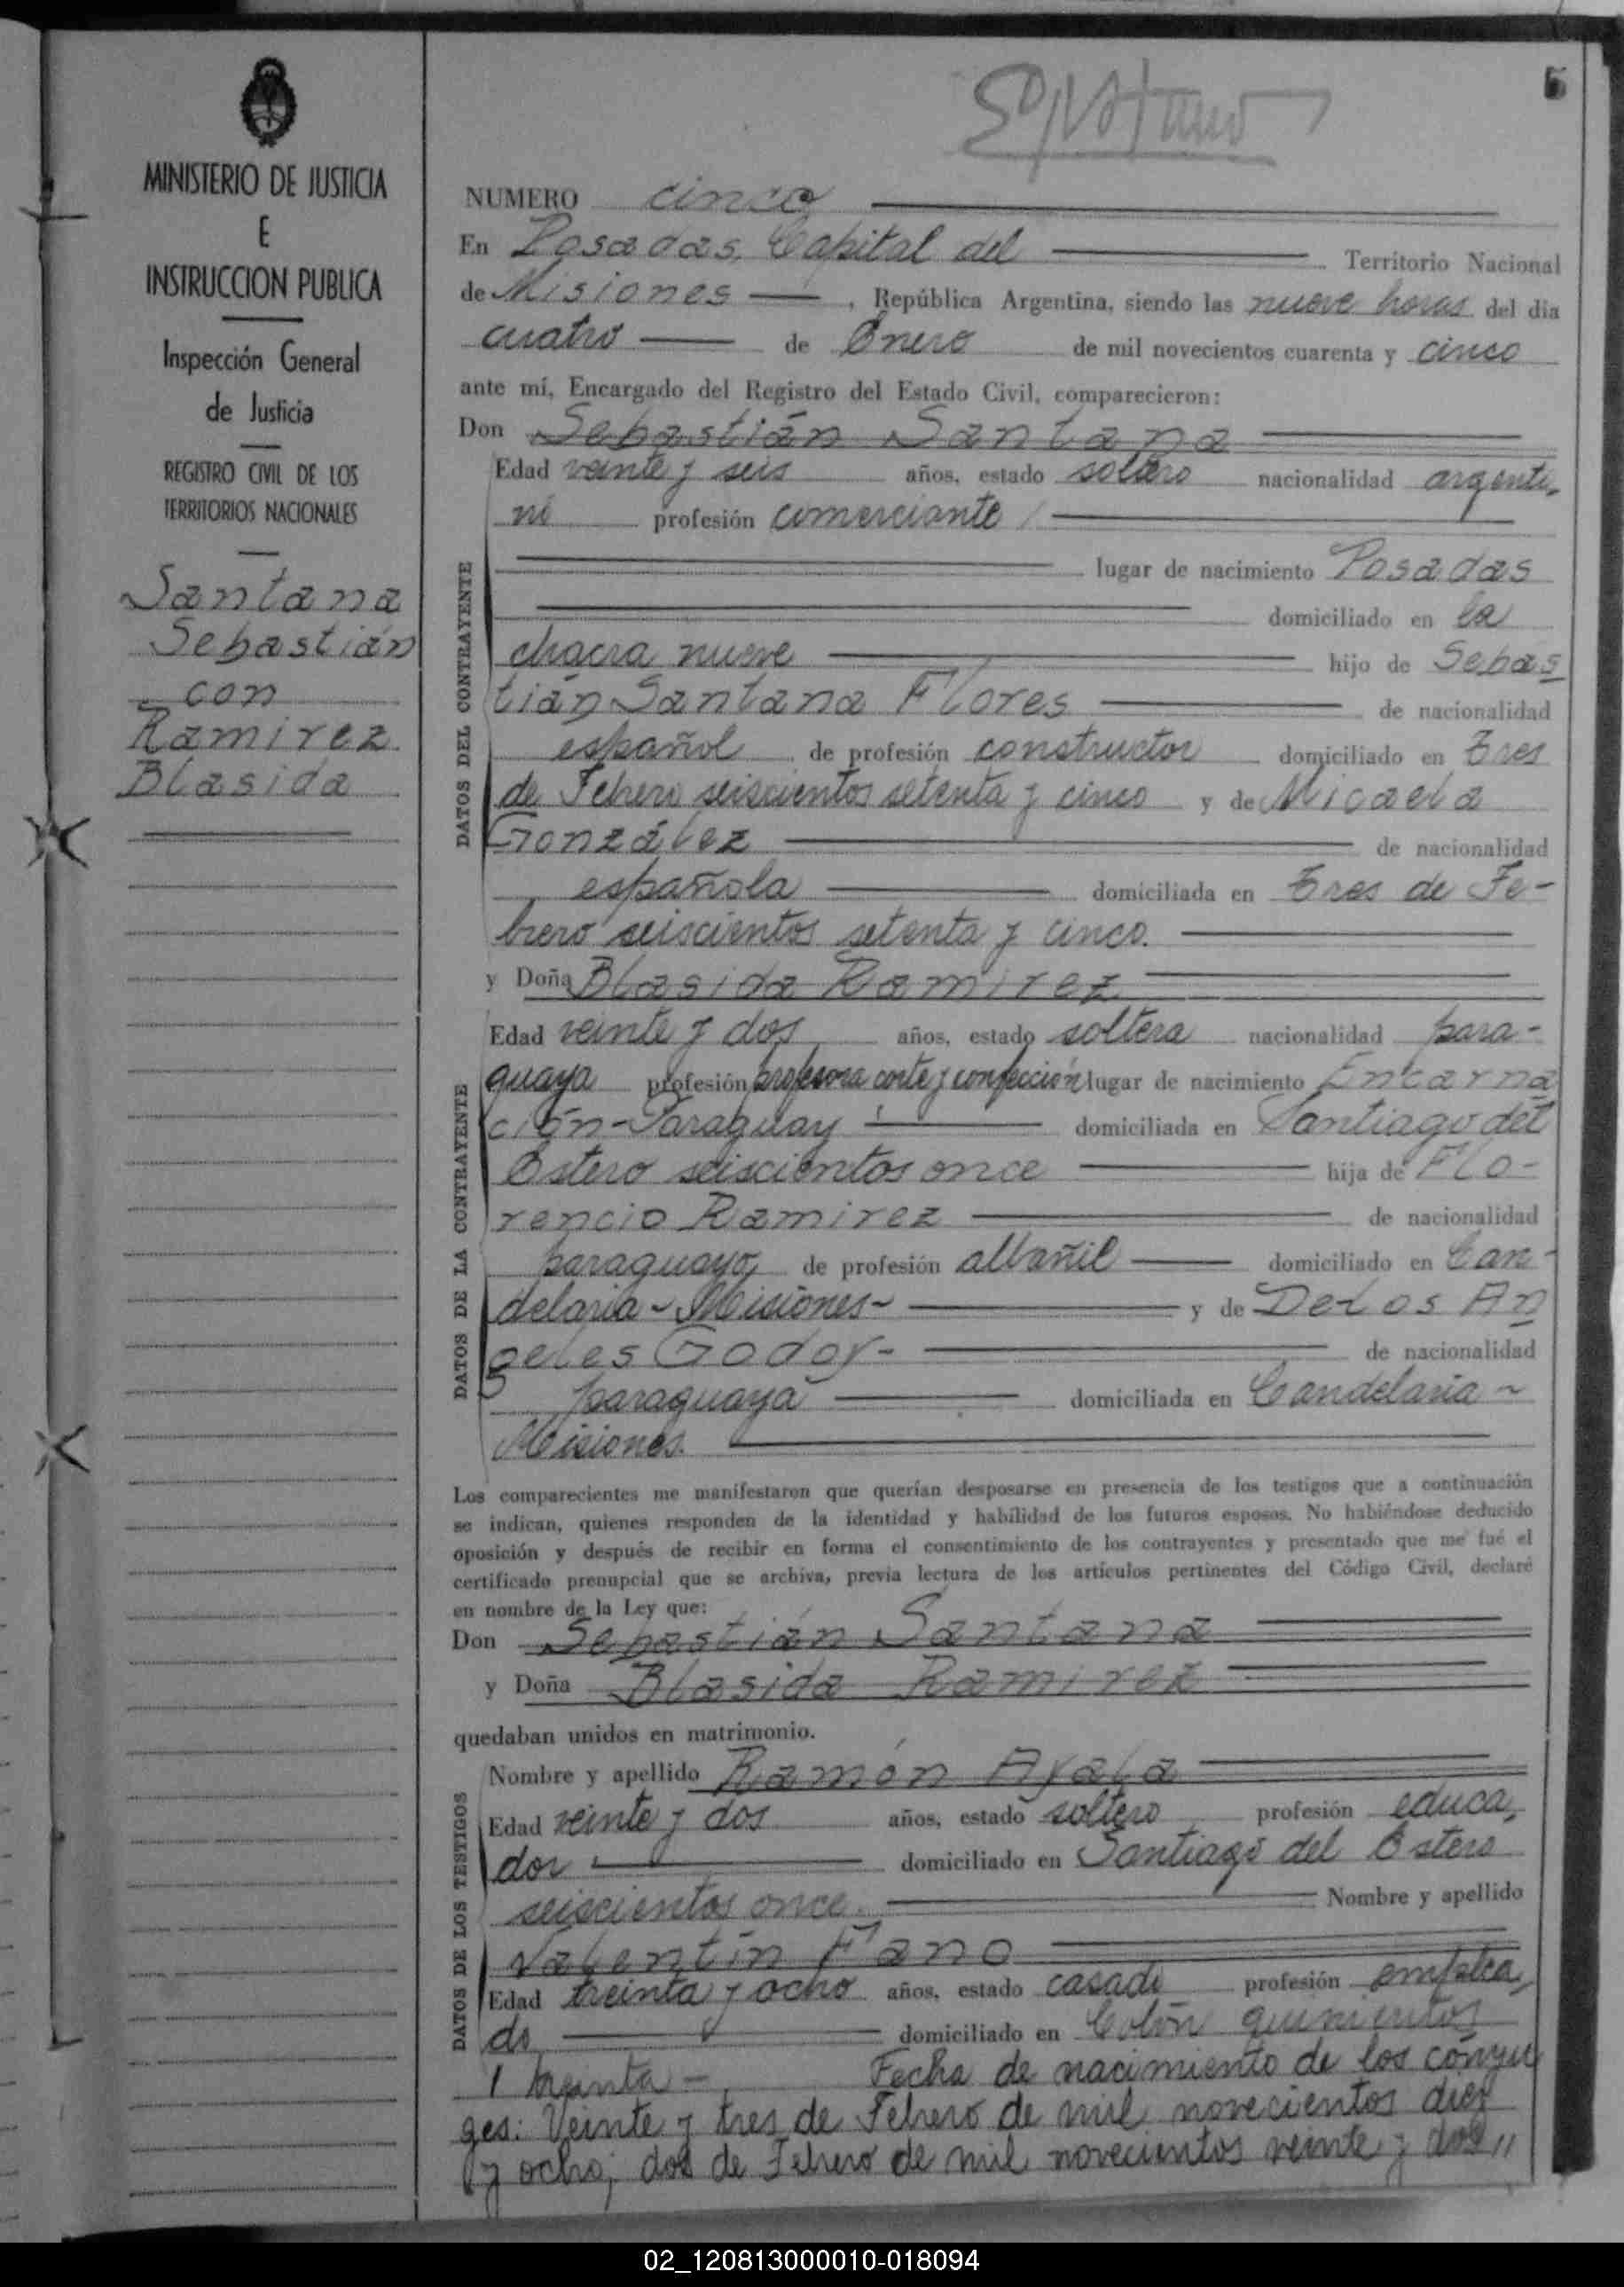 5
MINISTERIO DE JUSTICIA
E
INSTRUCCION PUBLICA
Inspección General
de Justicia
REGISTRO CIVIL DE LOS
TERRITORIOS NACIONALES
Santana
Sebastián
con
Ramirez
Blasida
NUMERO cinco
En Posadas, Capital del Territorio Nacional
de Misiones, República Argentina, siendo las nueve horas del dia
cuatro de Enero de mil novecientos cuarenta y cinco
ante mí, Encargado del Registro del Estado Civil, comparecieron:
Don Sebastián Santana
Edad veinte y seis años, estado soltero nacionalidad argenti-
no profesión comerciante
lugar de nacimiento Posadas
domiciliado en la
chacra nueve hijo de Sebas
tián Santana Flores de nacionalidad
español de profesión constructor domiciliado en Tres
de Febrero seiscientos setenta y cinco y de Micaela
González de nacionalidad
española domiciliada en Tres de Fe-
brero seiscientos setenta y cinco.
DATOS DEL CONTRAYENTE
y Doña Blasida Ramirez
Edad veinte y dos años, estado soltera nacionalidad para-
guaya profesión profesora corte y confección lugar de nacimiento Encarna
ción-Paraguay domiciliada en Santiago del
Estero seiscientos once hija de Flo-
rencio Ramirez de nacionalidad
paraguayo, de profesión albañil domiciliado en Can-
delaria - Misiones- y de De los An
geles Godoy- de nacionalidad
paraguaya domiciliada en Candelaria -
Misiones.
DATOS DE LA CONTRAYENTE
Los comparecientes me manifestaron que querían desposarse en presencia de los testigos que a continuación
se indican, quienes responden de la identidad y habilidad de los futuros esposos. No habiéndose deducido
oposición y después de recibir en forma el consentimiento de los contrayentes y presentado que me fué el
certificado prenupcial que se archiva, previa lectura de los artículos pertinentes del Código Civil, declaré
en nombre de la Ley que:
Don Sebastián Santana
y Doña Blasida Ramirez
quedaban unidos en matrimonio.
Nombre y apellido Ramón Ayala
Edad veinte y dos años, estado soltero profesión educa-
dor domiciliado en Santiago del Estero
seiscientos once. Nombre y apellido
Valentín Fano
Edad treinta y ocho años, estado casado profesión emplea-
do domiciliado en Colón quinientos
treinta - Fecha de nacimiento de los cónyu
ges: Veinte y tres de Febrero de mil novecientos diez
y ocho; dos de Febrero de mil novecientos veinte y dos,,
DATOS DE LOS TESTIGOS
02_120813000010-018094